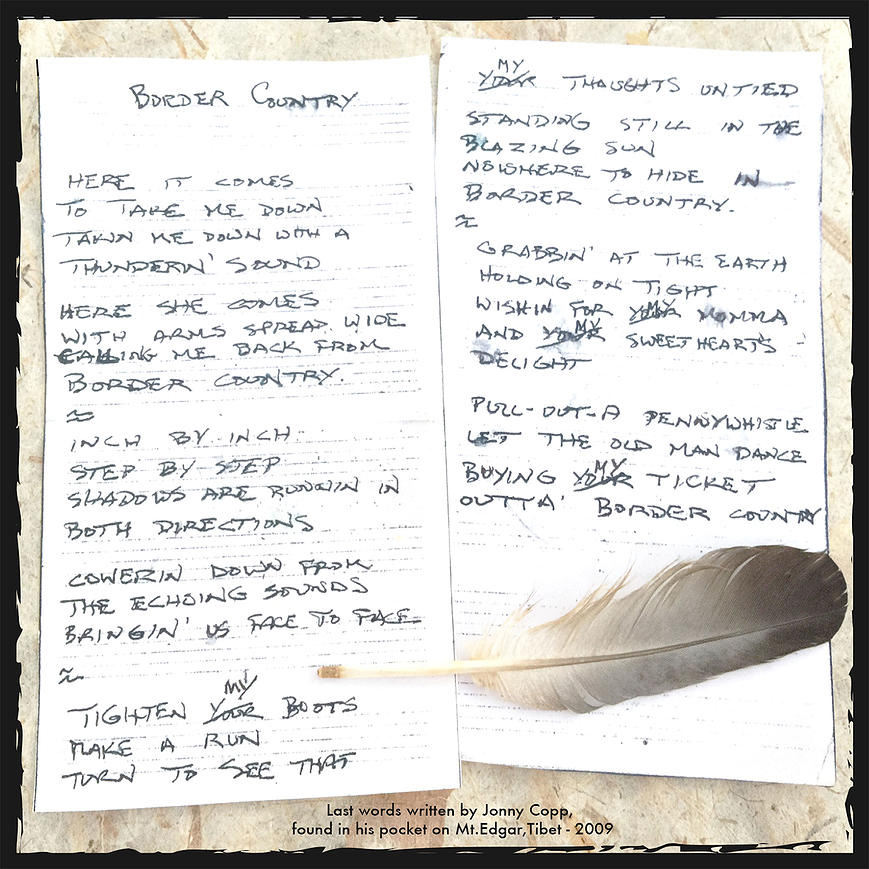 BORDER COUNTRY
HERE IT COMES
TO TAKE ME DOWN
TAKIN ME DOWN WITH A
THUNDERIN' SOUND
HERE SHE COMES
WITH ARMS SPREAD WIDE
CALLING ME BACK FROM
BORDER COUNTRY.
INCH BY INCH
STEP BY STEP
SHADOWS ARE RUNNIN IN
BOTH DIRECTIONS
COWERIN DOWN FROM
THE ECHOING SOUNDS
BRINGIN' US FACE TO FACE
MY
TIGHTEN YOUR BOOTS
MAKE A RUN
TURN TO SEE THAT
MY
YOUR THOUGHTS UNTIED
STANDING STILL IN THE
BLAZING SUN
NOWHERE TO HIDE IN
BORDER COUNTRY.
GRABBIN' AT THE EARTH
HOLDING ON TIGHT
WISHIN FOR YOUR MY MOMMA
AND YOUR MY SWEETHEART'S
DELIGHT
PULL-OUT-A PENNYWHISTLE
LET THE OLD MAN DANCE
BUYING YOUR MY TICKET
OUTTA' BORDER COUNTRY
Last words written by Jonny Copp,
found in his pocket on Mt.Edgar,Tibet - 2009